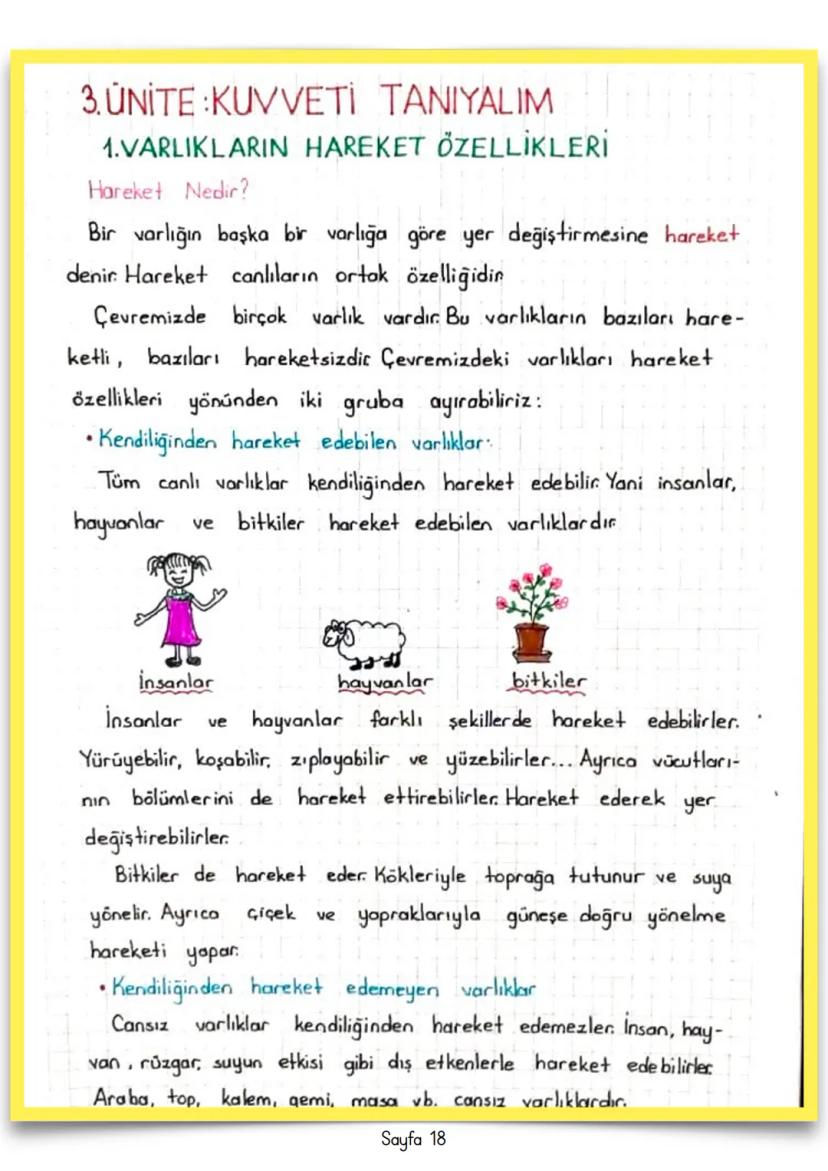 3.ÜNİTE:KUVVETİ TANIYALIM
1.VARLIKLARIN HAREKET ÖZELLİKLERİ
Hareket Nedir?
Bir varlığın başka bir varlığa göre yer değiştirmesine hareket
denir. Hareket canlıların ortak özelliğidir.
Çevremizde birçok varlık vardır. Bu varlıkların bazıları hare-
ketli, bazıları hareketsizdir. Çevremizdeki varlıkları hareket
özellikleri yönünden iki gruba ayırabiliriz:
• Kendiliğinden hareket edebilen varlıklar:
Tüm canlı varlıklar kendiliğinden hareket edebilir. Yani insanlar,
hayvanlar ve bitkiler hareket edebilen varlıklardır.
insanlar hayvanlar bitkiler
İnsanlar ve hayvanlar farklı şekillerde hareket edebilirler.
Yürüyebilir, koşabilir, zıplayabilir ve yüzebilirler... Ayrıca vücutları-
nın bölümlerini de hareket ettirebilirler. Hareket ederek yer
değiştirebilirler.
Bitkiler de hareket eder. Kökleriyle toprağa tutunur ve suya
yönelir. Ayrıca çiçek ve yapraklarıyla güneşe doğru yönelme
hareketi yapar.
• Kendiliğinden hareket edemeyen varlıklar
Cansız varlıklar kendiliğinden hareket edemezler. İnsan, hay-
van, rüzgar, suyun etkisi gibi dış etkenlerle hareket edebilirler.
Araba, top, kalem, gemi, masa vb. cansız varlıklardır.
Sayfa 18